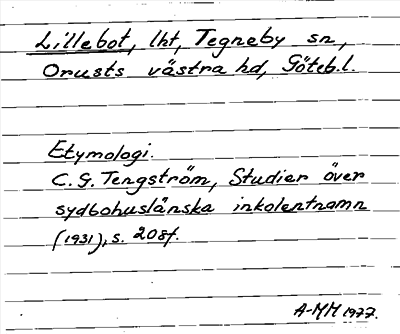 Lillebot, lht, Tegneby sn,
Orusts västra hd, Göteb.l.
Etymologi.
C.G. Tengström, Studier över
sydbohuslänska inkolentnamn
(1931), s. 208f.
A-MM 1977.